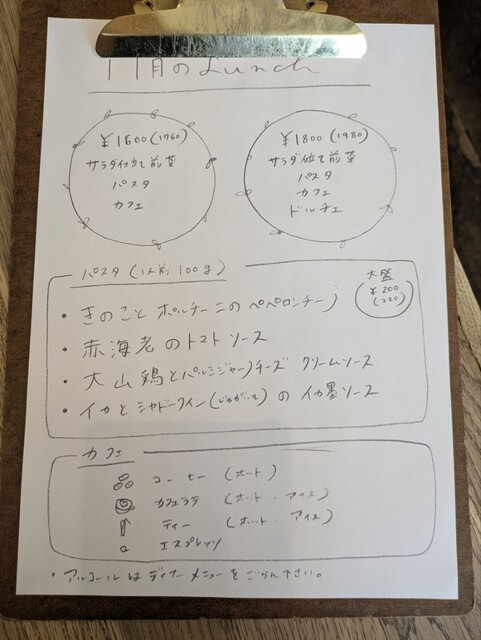 11月のLunch
¥1600(1760)
サラダ仕立て前菜
パスタ
カフェ
¥1800(1980)
サラダ仕立て前菜
パスタ
カフェ
ドルチェ
パスタ(1人前100g)
大盛
¥200
(220)
・きのことポルチーニのペペロンチーノ
・赤海老のトマトソース
・大山鶏とパルミジャーノチーズ クリームソース
・イカとシャドークイン(じゃがいも)の イカ墨ソース
カフェ
コーヒー (ホット)
カフェラテ (ホット・アイス)
ティー (ホット・アイス)
エスプレッソ
・アルコールはディナーメニューをごらん下さい。